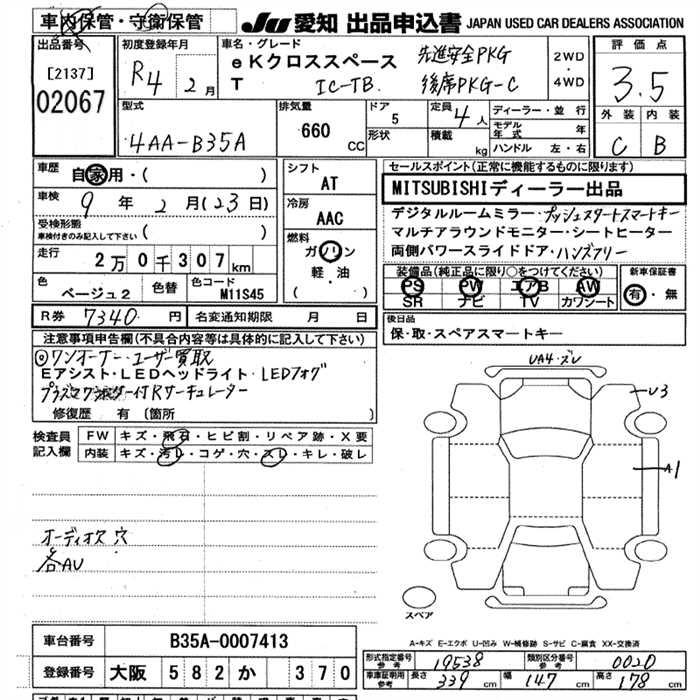 車内保管・守衛保管 JU 愛知 出品申込書 JAPAN USED CAR DEALERS ASSOCIATION
出品番号 [2137] 02067
初度登録年月 R4 2月
車名・グレード eKクロススペース 先進安全PKG
T IC-TB. 後席PKG-C
2WD・4WD
評価点 3.5
外装 内装
C B
型式 4AA-B35A
排気量 660 CC
ドア 5
形状
定員 4人
積載 kg
ディーラー・並行
モデル年式 年
ハンドル 左・右
車歴 自家用・( )
車検 9年2月(23日)
受検形態
車検付きのみ記入して下さい ( )
走行 2万0千307km
色 ベージュ2 色替 色コード M11S45
シフト AT
冷房 AAC
燃料 ガソリン
軽・油
( )
セールスポイント(正常に機能するものに限ります)
MITSUBISHIディーラー出品
デジタルルームミラー・プッシュスタートスマートキー
マルチアラウンドモニター・シートヒーター
両側パワースライドドア・ハンズフリー
装備品(純正品に限り○をつけてください)
PS PW エアB AW
SR ナビ TV カワシート
新車保証書
有・無
R券 7340円 名変通知期限 月 日
後日品
保・取・スペアスマートキー
注意事項申告欄(不具合内容等は具体的に記入して下さい)
◎ワンオーナー・ユーザー買取
Eアシスト・LEDヘッドライト・LEDフォグ
付Rサーキュレーター
修復歴 有(箇所 )
検査員記入欄 FW キズ・飛石・ヒビ割・リペア跡・X要
内装 キズ・汚レ・コゲ・穴・スレ・キレ・破レ
オーディオス 穴
各AU
UA4・ズレ
U3
A1
スペア
A-キズ E-エクボ U-凹み W-補修跡 S-サビ C-腐食 XX-交換済
車台番号 B35A-0007413
登録番号 大阪 582 か 370
形式指定番号 参考 19538 類別区分番号 参考 0020
車庫証明用 参考 長さ 339cm 幅 147cm 高さ 178cm